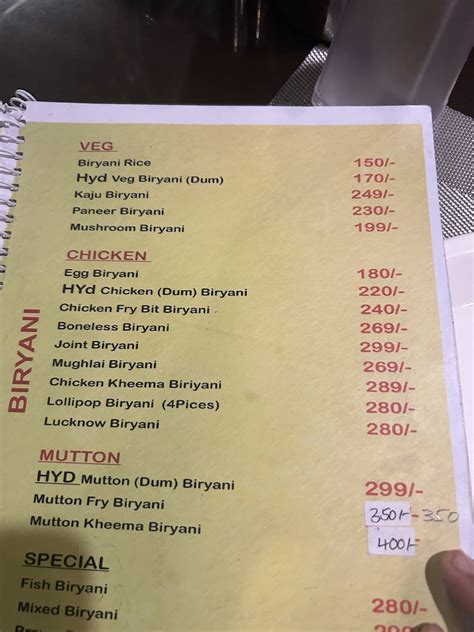 BIRYANI
VEG
Biryani Rice 150/-
Hyd Veg Biryani (Dum) 170/-
Kaju Biryani 249/-
Paneer Biryani 230/-
Mushroom Biryani 199/-
CHICKEN
Egg Biryani 180/-
HYd Chicken (Dum) Biryani 220/-
Chicken Fry Bit Biryani 240/-
Boneless Biryani 269/-
Joint Biryani 299/-
Mughlai Biryani 269/-
Chicken Kheema Biriyani 289/-
Lollipop Biryani (4Pices) 280/-
Lucknow Biryani 280/-
MUTTON
HYD Mutton (Dum) Biryani 299/-
Mutton Fry Biryani 350/- -350
Mutton Kheema Biryani 400/-
SPECIAL
Fish Biryani 280/-
Mixed Biryani